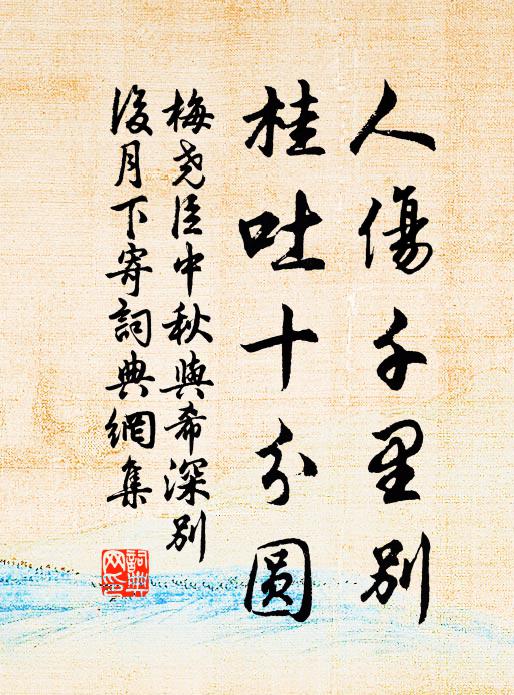 人傷千里別
桂吐十分圓
梅堯臣中秋與希深別
後月下寄詞典網集
詞典網印